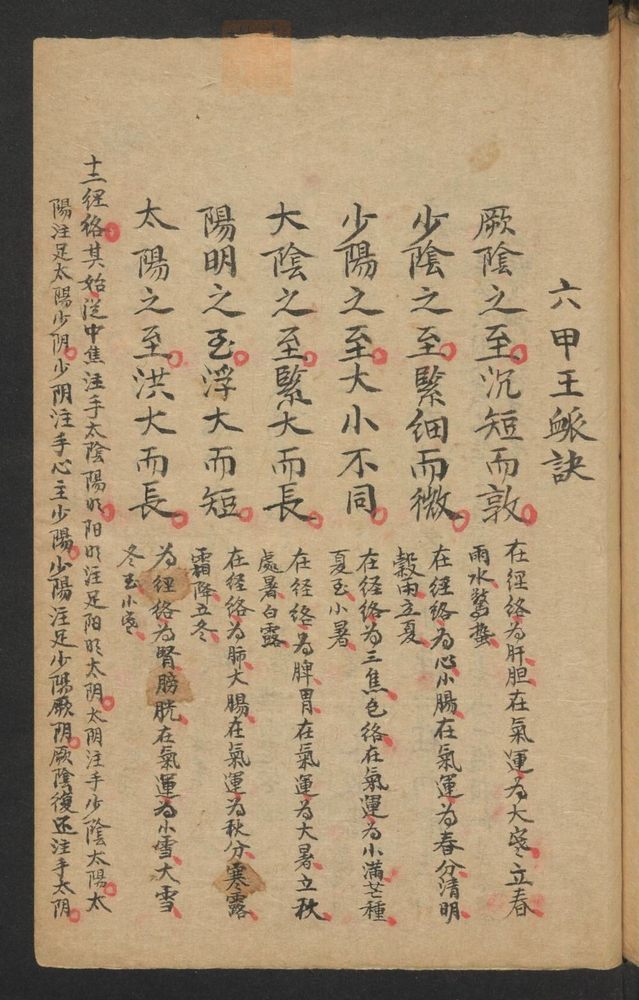 六甲王脈訣
厥陰之至沉短而敦
在經络为肝胆在氣運为大寒立春
雨水驚蟄
少陰之至緊細而微
在經络为心小腸在氣運为春分清明
穀雨立夏
少陽之至大小不同
在经络为三焦包络在氣運为小满芒種
夏至小暑
大陰之至緊大而長
在经络为脾胃在氣運为大暑立秋
處暑白露
陽明之至浮大而短
在经络为肺大腸在氣運为秋分寒露
霜降立冬
太陽之至洪大而長
为經络为腎膀胱在氣運为小雪大雪
冬至小寒
十二經络其始從中焦注手太陰陽明阳明注足阳明太阴太阴注手少陰太陽太
陽注足太陽少阴少阴注手心主少陽少陽注足少陽厥阴厥陰復还注手太阴